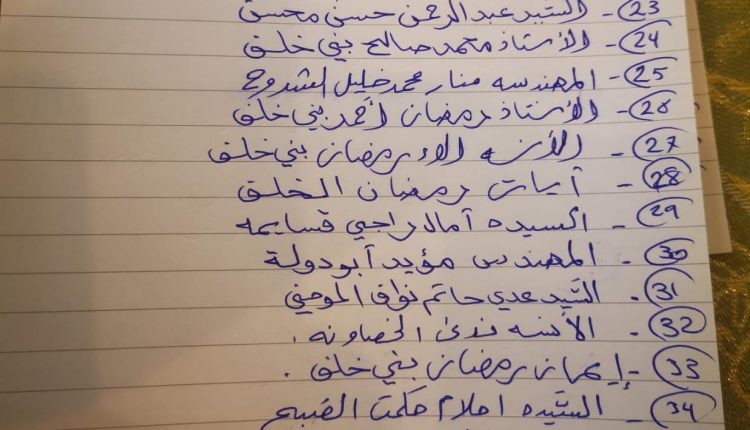 23- السيد عبد الرحمن حسني محسن
24- الأستاذ محمد صالح بني خلف
25- المهندسه منار محمد خليل الشدوح
26- الأستاذ رمضان أحمد بني خلف
27- الأنسه الاء رمضان بني خلف
28- آيات رمضان الخلف
29- السيده آمال راجي قسايمه
30- المهندس مؤيد أبو دولة
31- السيد عدي حاتم نواف المومني
32- الأنسه ندى الخصاونه.
33- إيمان رمضان بني خلف.
34- السيده احلام حكمت